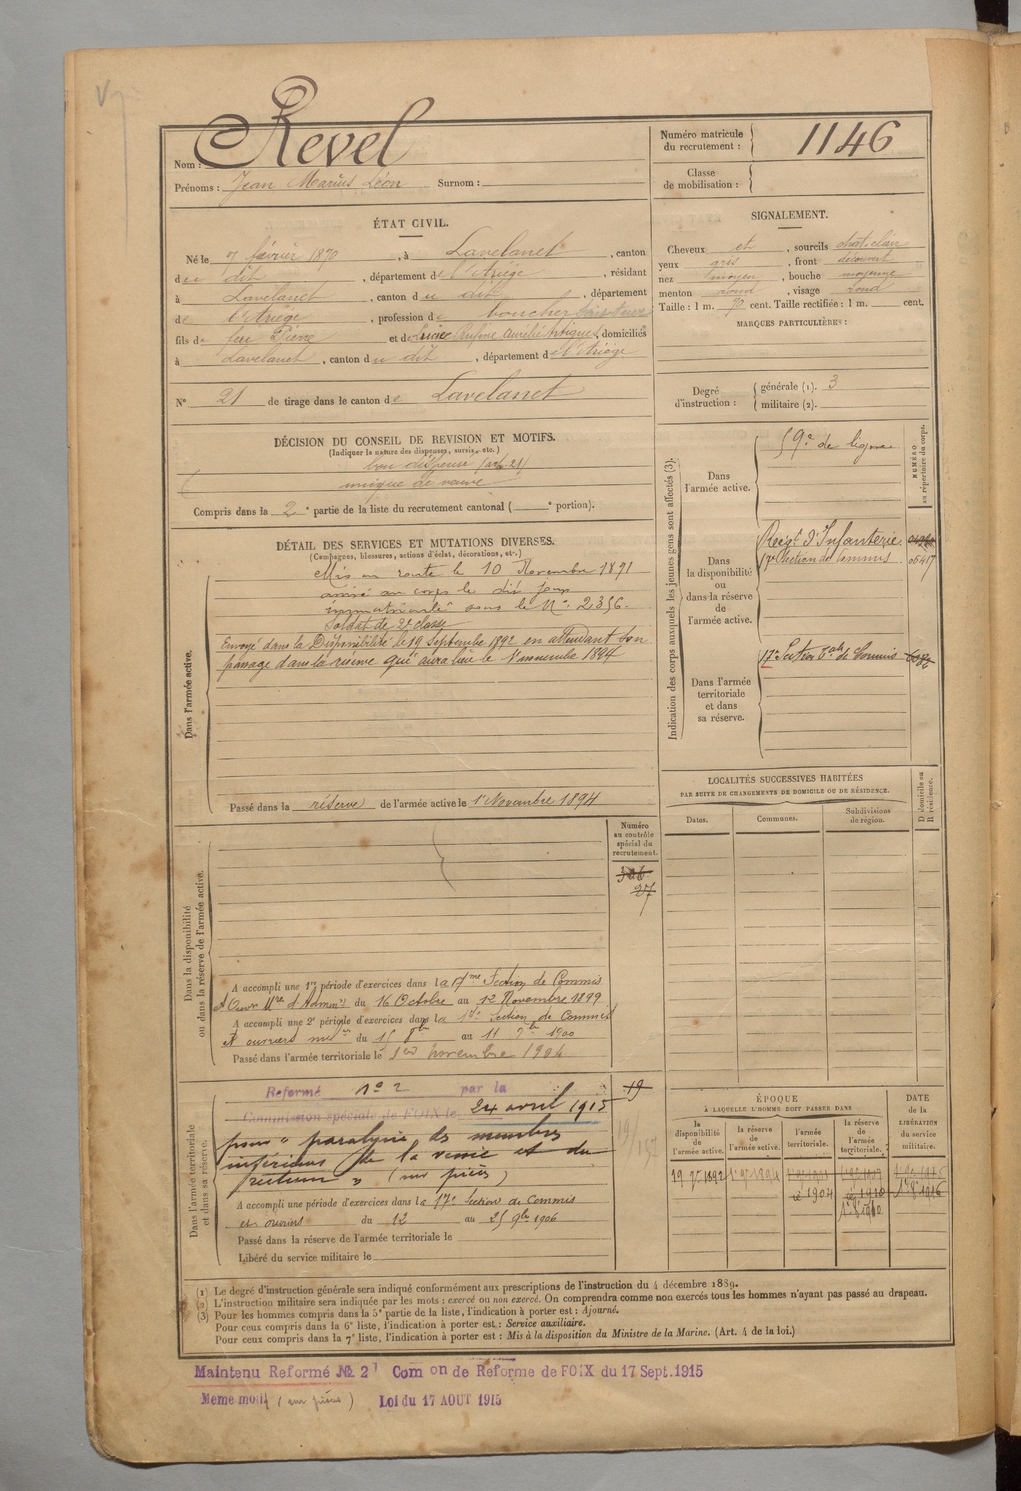 Nom : Revel
Prénoms : Jean Marius Léon Surnom :
Numéro matricule du recrutement : 1146
Classe de mobilisation :
ÉTAT CIVIL.
Né le 7 février 1870, à Lavelanet, canton
du dit, département de l'Ariège, résidant
à Lavelanet, canton du dit, département
de l'Ariège, profession de boucher
fils de feu Pierre et de Rufine Aurélie, domiciliés
à Lavelanet, canton du dit, département de l'Ariège
N° 21 de tirage dans le canton de Lavelanet
SIGNALEMENT.
Cheveux et, sourcils chat. clair
yeux gris, front découvert
nez moyen, bouche moyenne
menton rond, visage rond
Taille : 1 m. 70 cent. Taille rectifiée : 1 m. cent.
MARQUES PARTICULIÈRES :
Degré d'instruction : générale (1). 3
militaire (2).
DÉCISION DU CONSEIL DE REVISION ET MOTIFS.
(Indiquer la nature des dispenses, sursis, etc.)
bon dispensé (art. 21)
unique de veuve
Compris dans la 2e partie de la liste du recrutement cantonal ( e portion).
DÉTAIL DES SERVICES ET MUTATIONS DIVERSES.
(Campagnes, blessures, actions d'éclat, décorations, etc.)
Dans l'armée active.
Mis en route le 10 Novembre 1891
arrivé au corps le dit jour
immatriculé sous le N° 2356.
Soldat de 2e classe
Envoyé dans la Disponibilité le 19 Septembre 1892 en attendant son
passage dans la réserve qui aura lieu le 1er novembre 1894
Passé dans la réserve de l'armée active le 1er Novembre 1894
Indication des corps auxquels les jeunes gens sont affectés (3).
NUMÉRO au répertoire du corps.
Dans l'armée active.
59e de ligne
Dans la disponibilité ou dans la réserve de l'armée active.
Régt d'Infanterie
17e Section de Commis 05417
Dans l'armée territoriale et dans sa réserve.
17e Section Tale de Commis
LOCALITÉS SUCCESSIVES HABITÉES
PAR SUITE DE CHANGEMENTS DE DOMICILE OU DE RÉSIDENCE.
Dates. Communes. Subdivisions de région. D domicile ou R résidence.
Numéro au contrôle spécial du recrutement.
27
Dans la disponibilité ou dans la réserve de l'armée active.
A accompli une 1re période d'exercices dans la 17me Section de Commis
et Ouvr du 16 Octobre au 12 Novembre 1899
A accompli une 2e période d'exercices dans la 17e Section de Commis
et ouvriers du 15 8bre au 11 9bre 1900
Passé dans l'armée territoriale le 1er novembre 1904
Dans l'armée territoriale et dans sa réserve.
Reformé n° 2 par la 19
Commission spéciale de FOIX le 24 avril 1915
pour "paralysie des membres
inférieurs de la vessie et du
rectum" (sur pièces)
A accompli une période d'exercices dans la 17e Section de Commis
et ouvriers du 12 au 25 9bre 1906
Passé dans la réserve de l'armée territoriale le
Libéré du service militaire le
ÉPOQUE
À LAQUELLE L'HOMME DOIT PASSER DANS
la disponibilité de l'armée active. la réserve de l'armée active. l'armée territoriale. la réserve de l'armée territoriale.
DATE de la LIBÉRATION du service militaire.
19 7e 1892 1er 9e 1894
1904 1910 1er 8e 1916
(1) Le degré d'instruction générale sera indiqué conformément aux prescriptions de l'instruction du 4 décembre 1889.
(2) L'instruction militaire sera indiquée par les mots : exercé ou non exercé. On comprendra comme non exercés tous les hommes n'ayant pas passé au drapeau.
(3) Pour les hommes compris dans la 5e partie de la liste, l'indication à porter est : Ajourné.
Pour ceux compris dans la 6e liste, l'indication à porter est : Service auxiliaire.
Pour ceux compris dans la 7e liste, l'indication à porter est : Mis à la disposition du Ministre de la Marine. (Art. 4 de la loi.)
Maintenu Reformé № 2 Com on de Reforme de FOIX du 17 Sept. 1915
Meme motif (sur pièces) Loi du 17 AOUT 1915